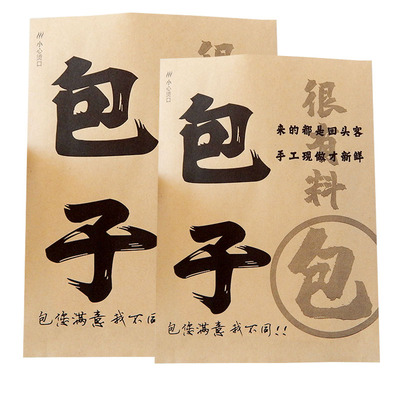 小心烫口
包子
很
包您满意 我不同
小心烫口
包子
很有料
来的都是回头客
手工现做才新鲜
包
包您满意 我不同!!